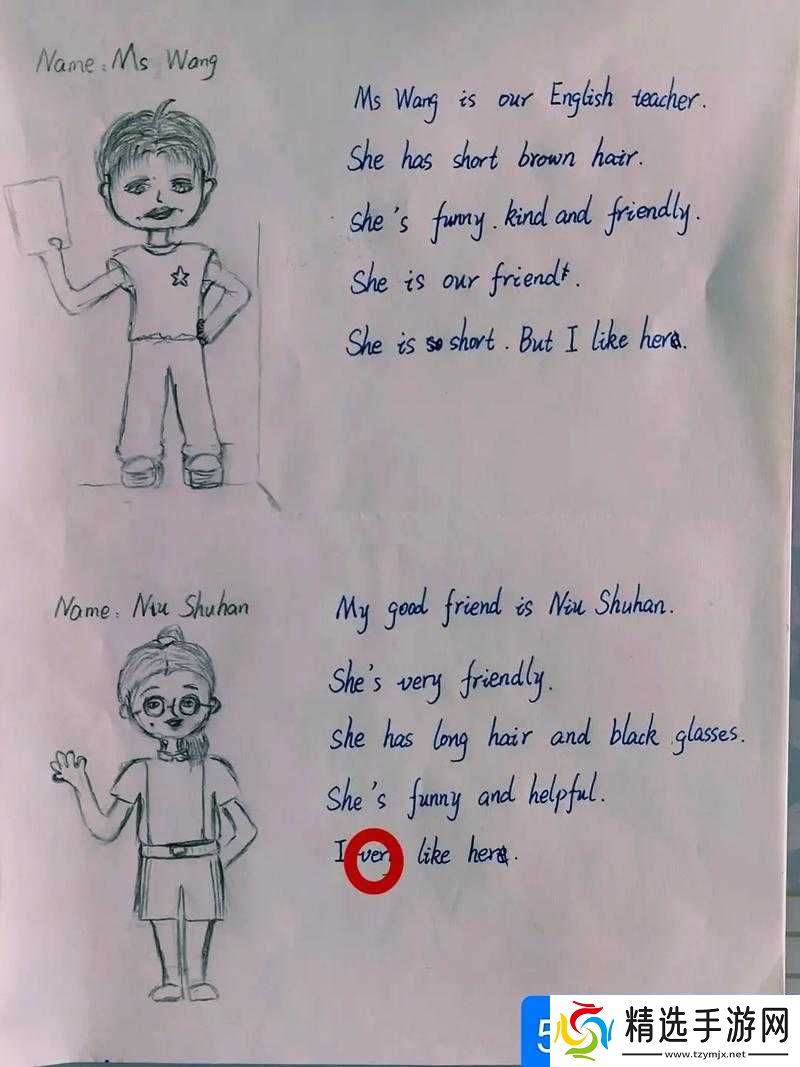 Name: Ms Wang
Ms Wang is our English teacher.
She has short brown hair.
She's funny. kind and friendly.
She is our friend.
She is short. But I like her.
Name: Niu Shuhan
My good friend is Niu Shuhan.
She's very friendly.
She has long hair and black glasses.
She's funny and helpful.
I very like her.
5
精选手游网
www.tzymjx.net